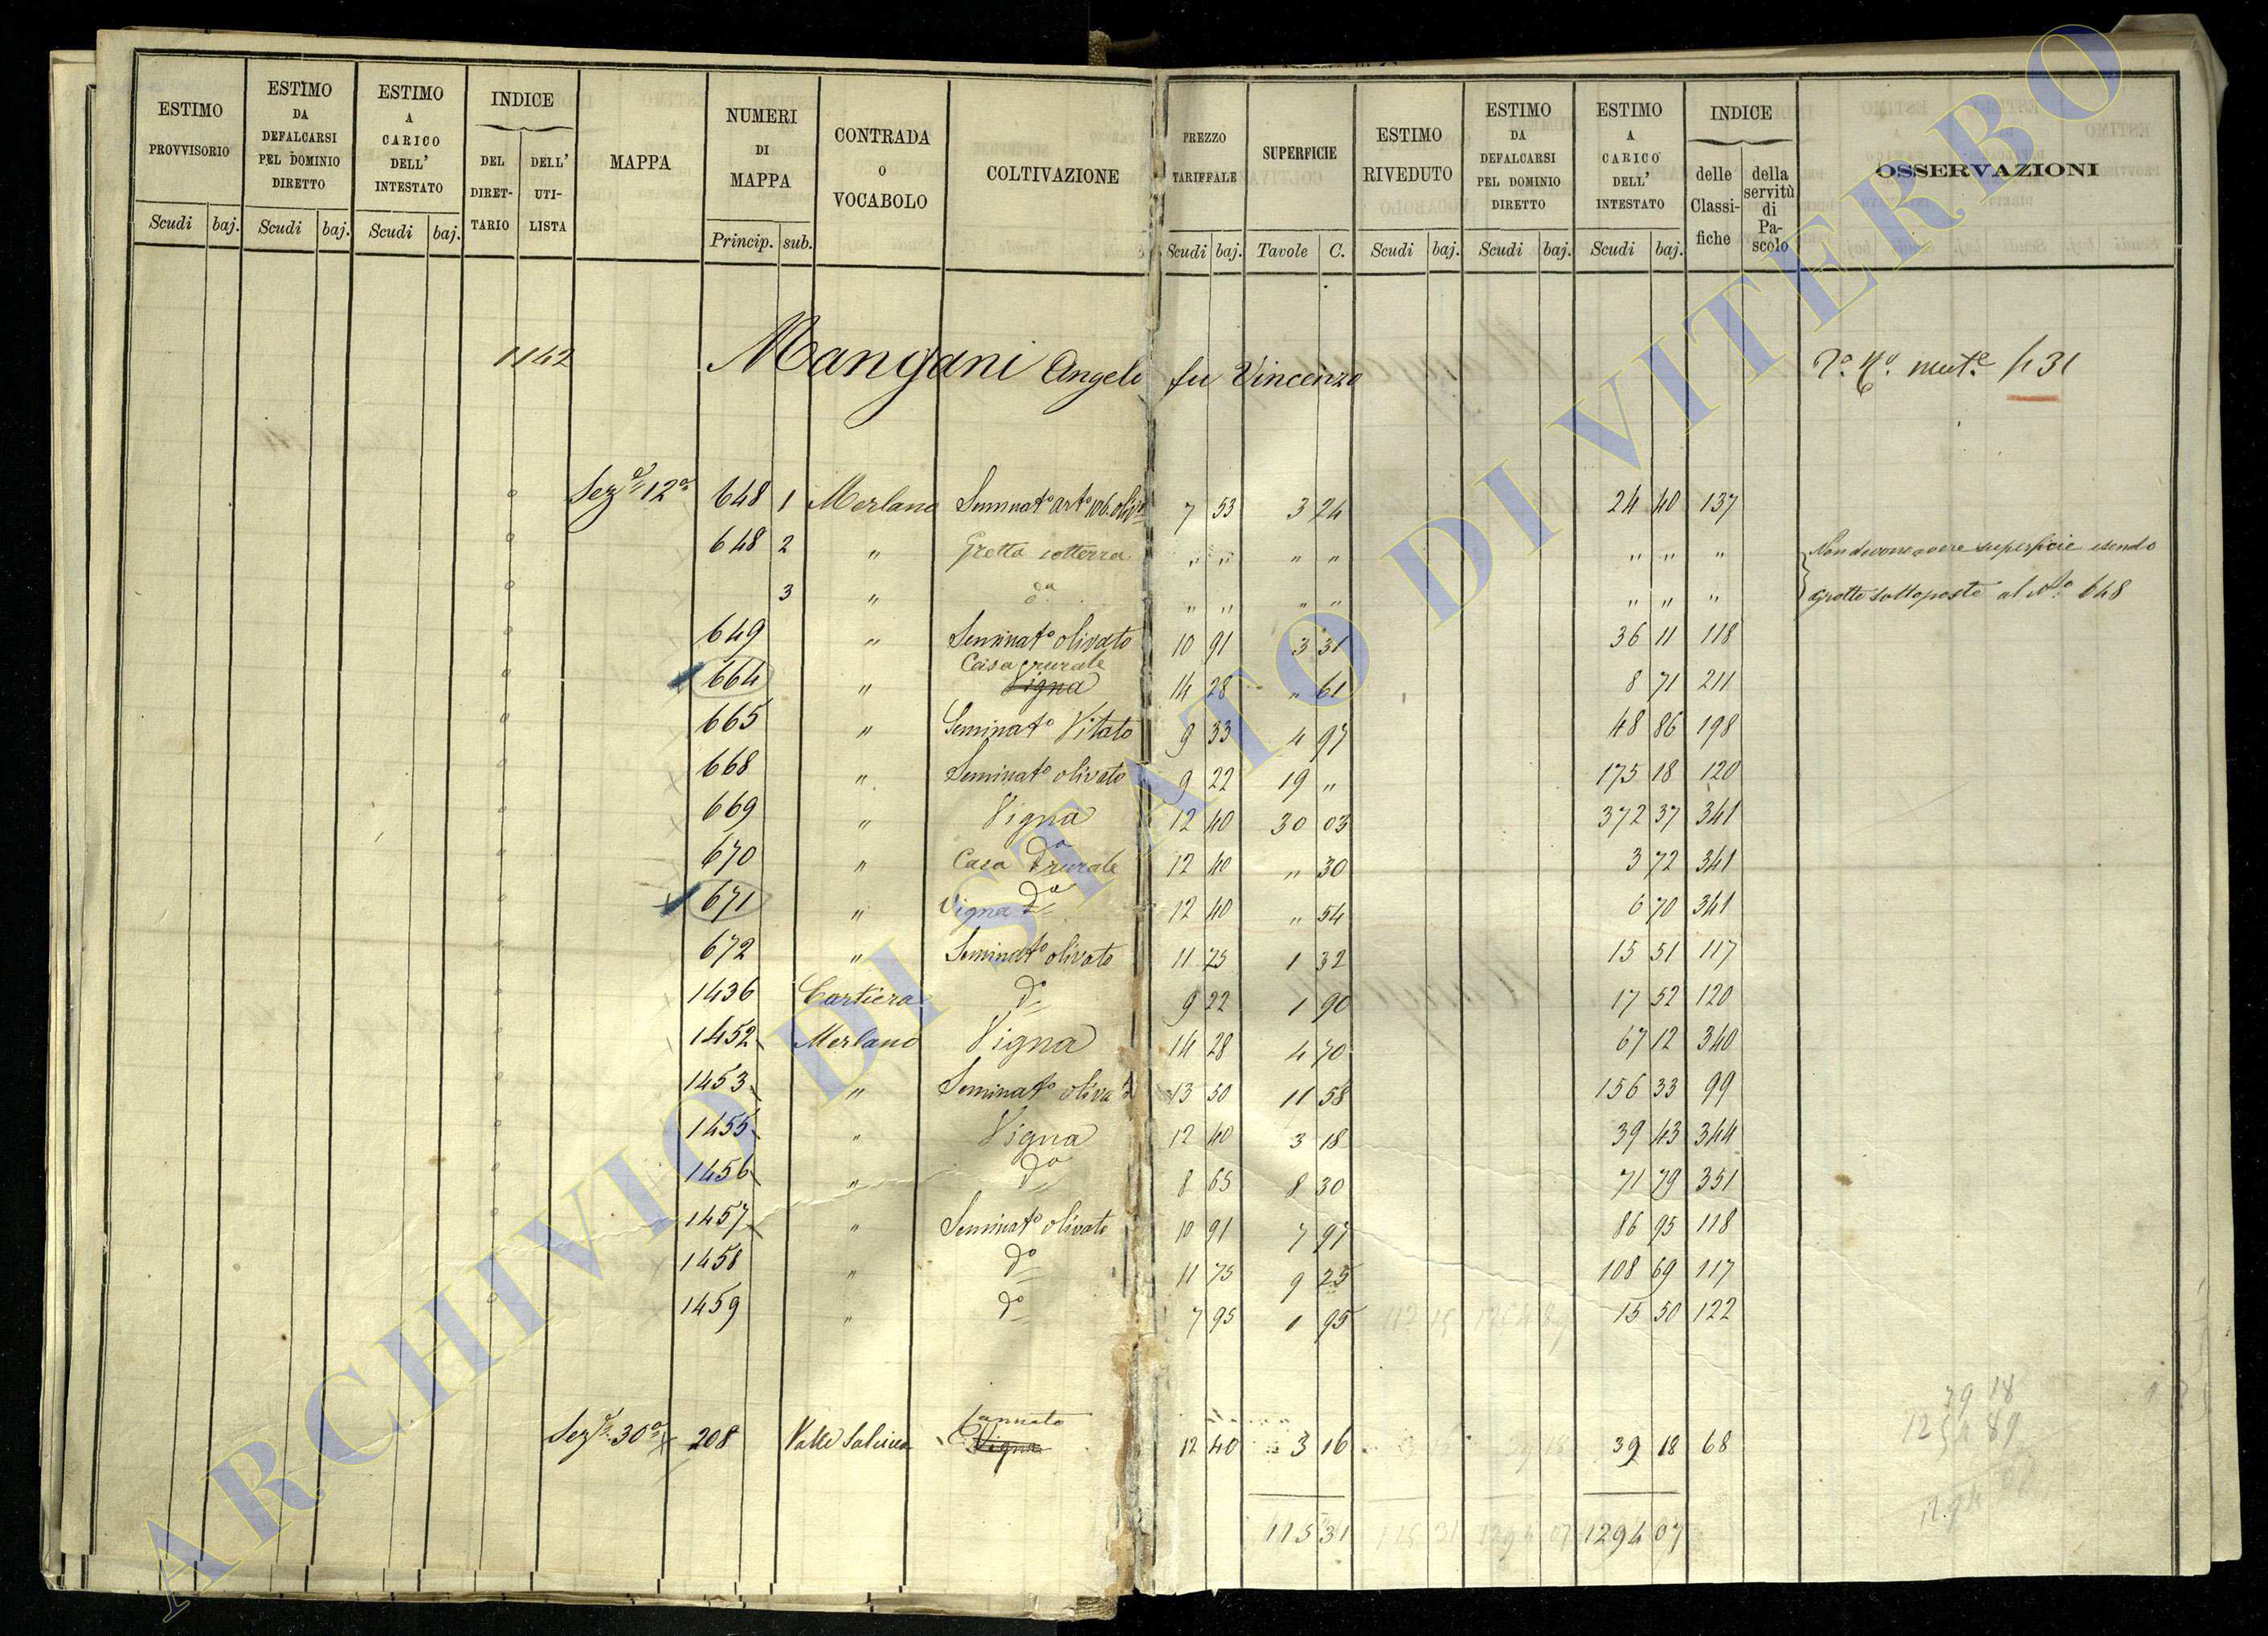 ESTIMO PROVVISORIO Scudi baj.
ESTIMO DA DEFALCARSI PEL DOMINIO DIRETTO Scudi baj.
ESTIMO A CARICO DELL' INTESTATO Scudi baj.
INDICE DEL DIRET-TARIO DELL' UTI-LISTA
MAPPA
NUMERI DI MAPPA Princip. sub.
CONTRADA O VOCABOLO
COLTIVAZIONE
PREZZO TARIFFALE Scudi baj.
SUPERFICIE Tavole C.
ESTIMO RIVEDUTO Scudi baj.
ESTIMO DA DEFALCARSI PEL DOMINIO DIRETTO Scudi baj.
ESTIMO A CARICO DELL' INTESTATO Scudi baj.
INDICE delle Classi-fiche della servitù di Pa-scolo
OSSERVAZIONI
1142 Mangani Angelo fu Vincenzo
Sez.e 12a 648 1 Merlano Seminato 7 53 3 24 24 40 137
648 2 " Grotta sotterra " " " " " " " Non devono avere superficie esendo
3 " da " " " " " " " grotte sottoposte al No. 648
649 " Seminato olivato 10 91 3 31 36 11 118
664 " Casa rurale Vigna 14 28 " 61 8 71 211
665 " Seminato Vitato 9 33 4 97 48 86 198
668 " Seminato olivato 9 22 19 " 175 18 120
669 " Vigna 12 40 30 03 372 37 341
670 " Casa rurale da 12 40 " 30 3 72 341
671 " Vigna da 12 40 " 54 6 70 341
672 " Seminato olivato 11 75 1 32 15 51 117
1436 Cartiera do 9 22 1 90 17 52 120
1452 Merlano Vigna 14 28 4 70 67 12 340
1453 " Seminato olivato 13 50 11 58 156 33 99
1455 " Vigna 12 40 3 18 39 43 344
1456 " da 8 65 8 30 71 79 351
1457 " Seminato olivato 10 91 7 97 86 95 118
1458 " do 11 75 9 25 108 69 117
1459 " do 7 95 1 95 15 50 122
Sez.e 30a 208 Valle Canneto Vigna 12 40 3 16 39 18 68
115 31 1294 07
ARCHIVIO DI STATO DI VITERBO